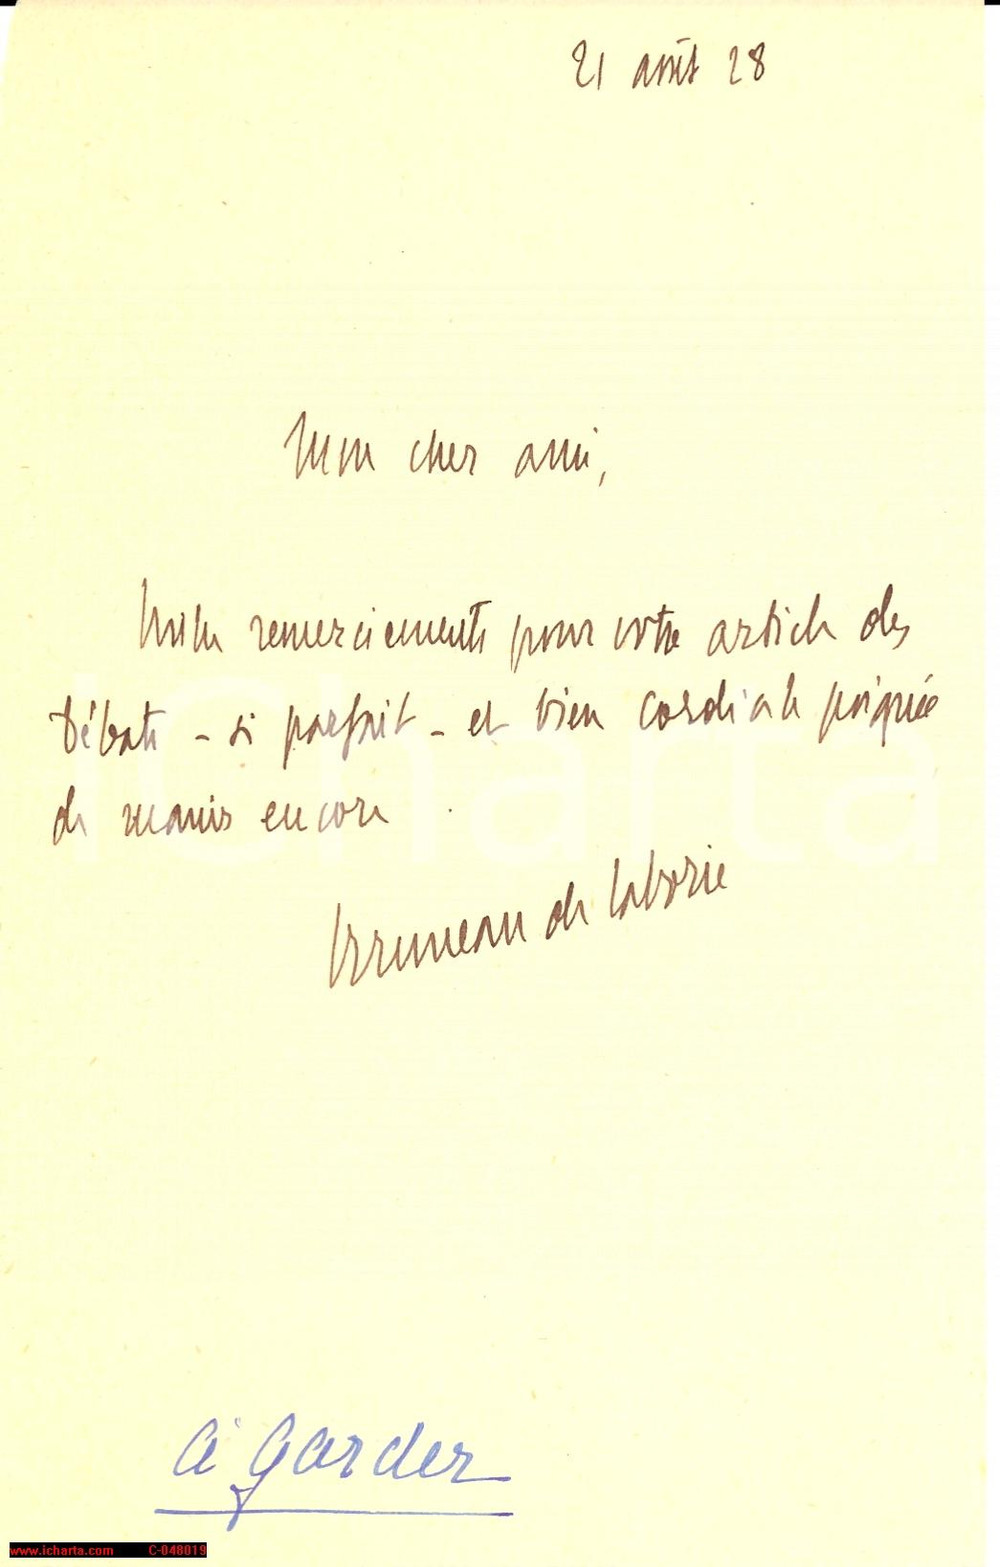 21 août 28
Mon cher ami,
Mille remerciements pour votre article des
Débats - si parfait - et bien cordiale poignée
de mains encore.
Bruneau de Laborie
à garder
iCharta
www.icharta.com C-048019